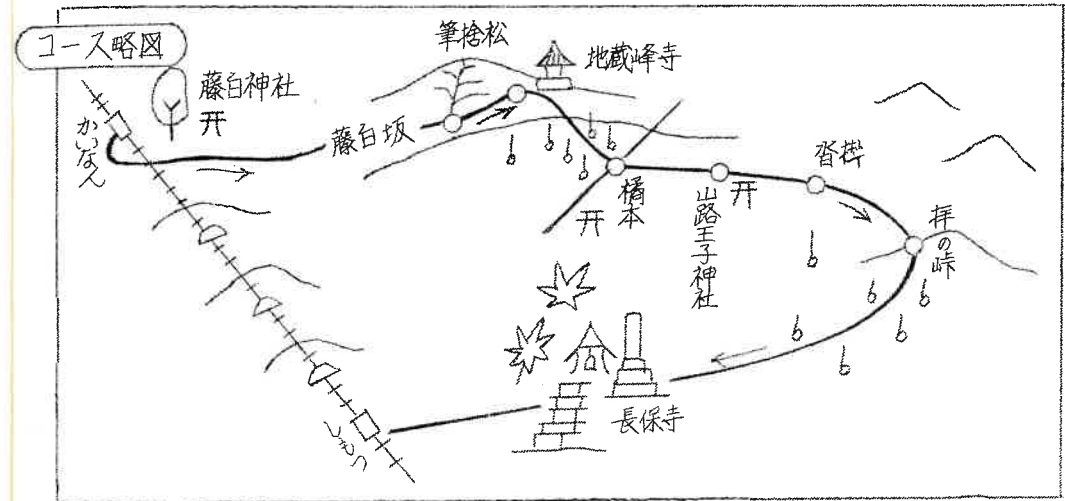 コース略図
かいなん
藤白神社
藤白坂
筆捨松
地蔵峰寺
橘本
山路王子神社
沓掛
拝の峠
長保寺
しもつ